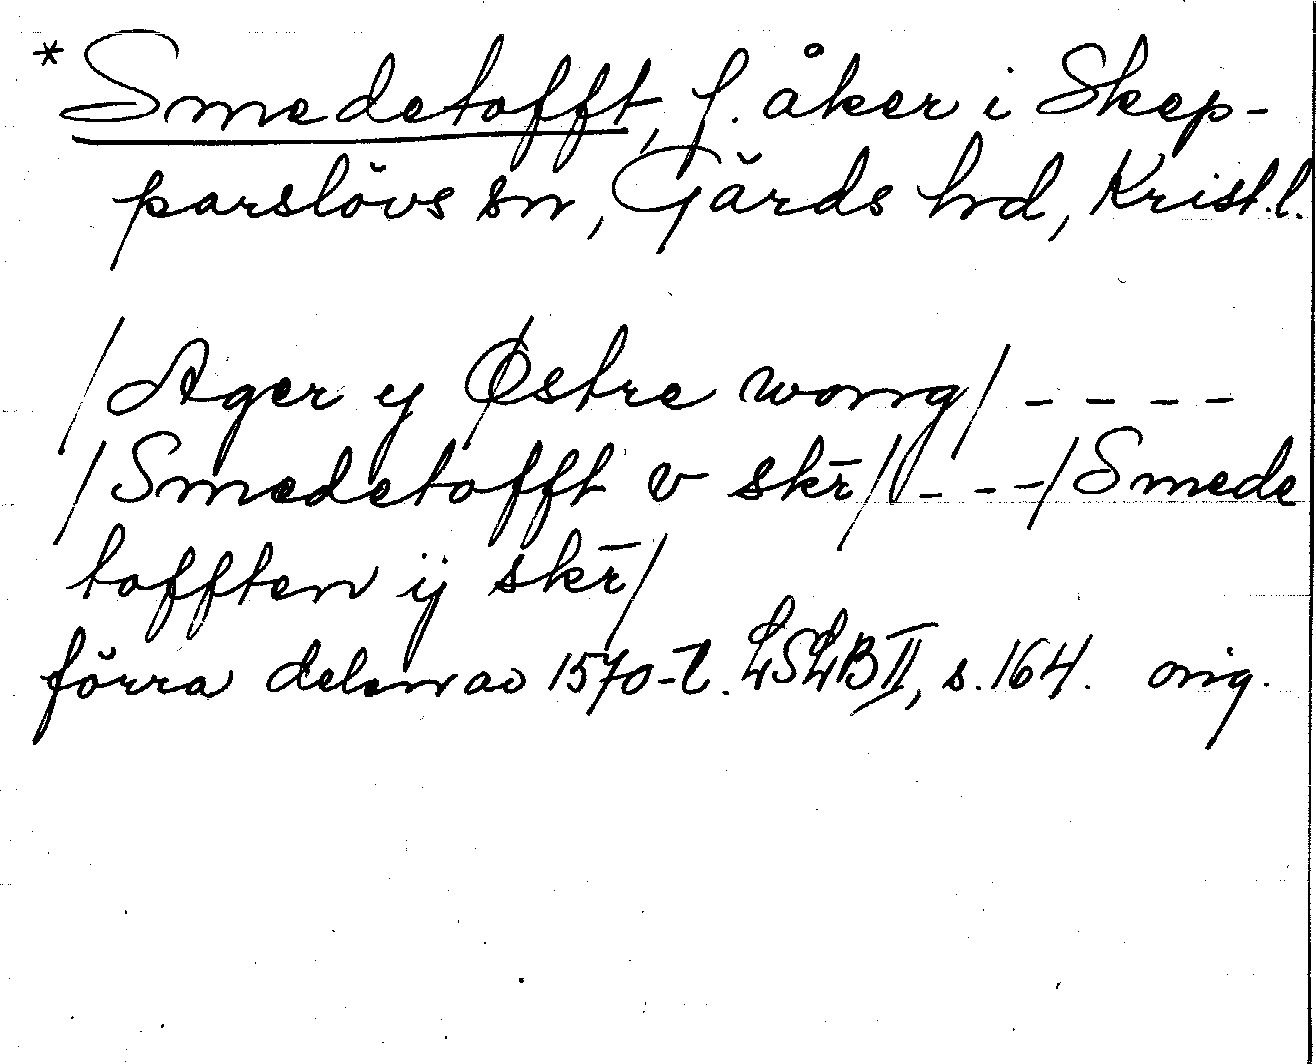 *Smedetofft, f. åker i Skep-
parslövs sn, Gärds hd, Krist.l.
/Ager y Østre wong/ - - - -
/Smedetofft v skr̄/ - - - /Smede
tofften ij skr̄/
förra delen av 1570-t. LSLB II, s. 164. orig.